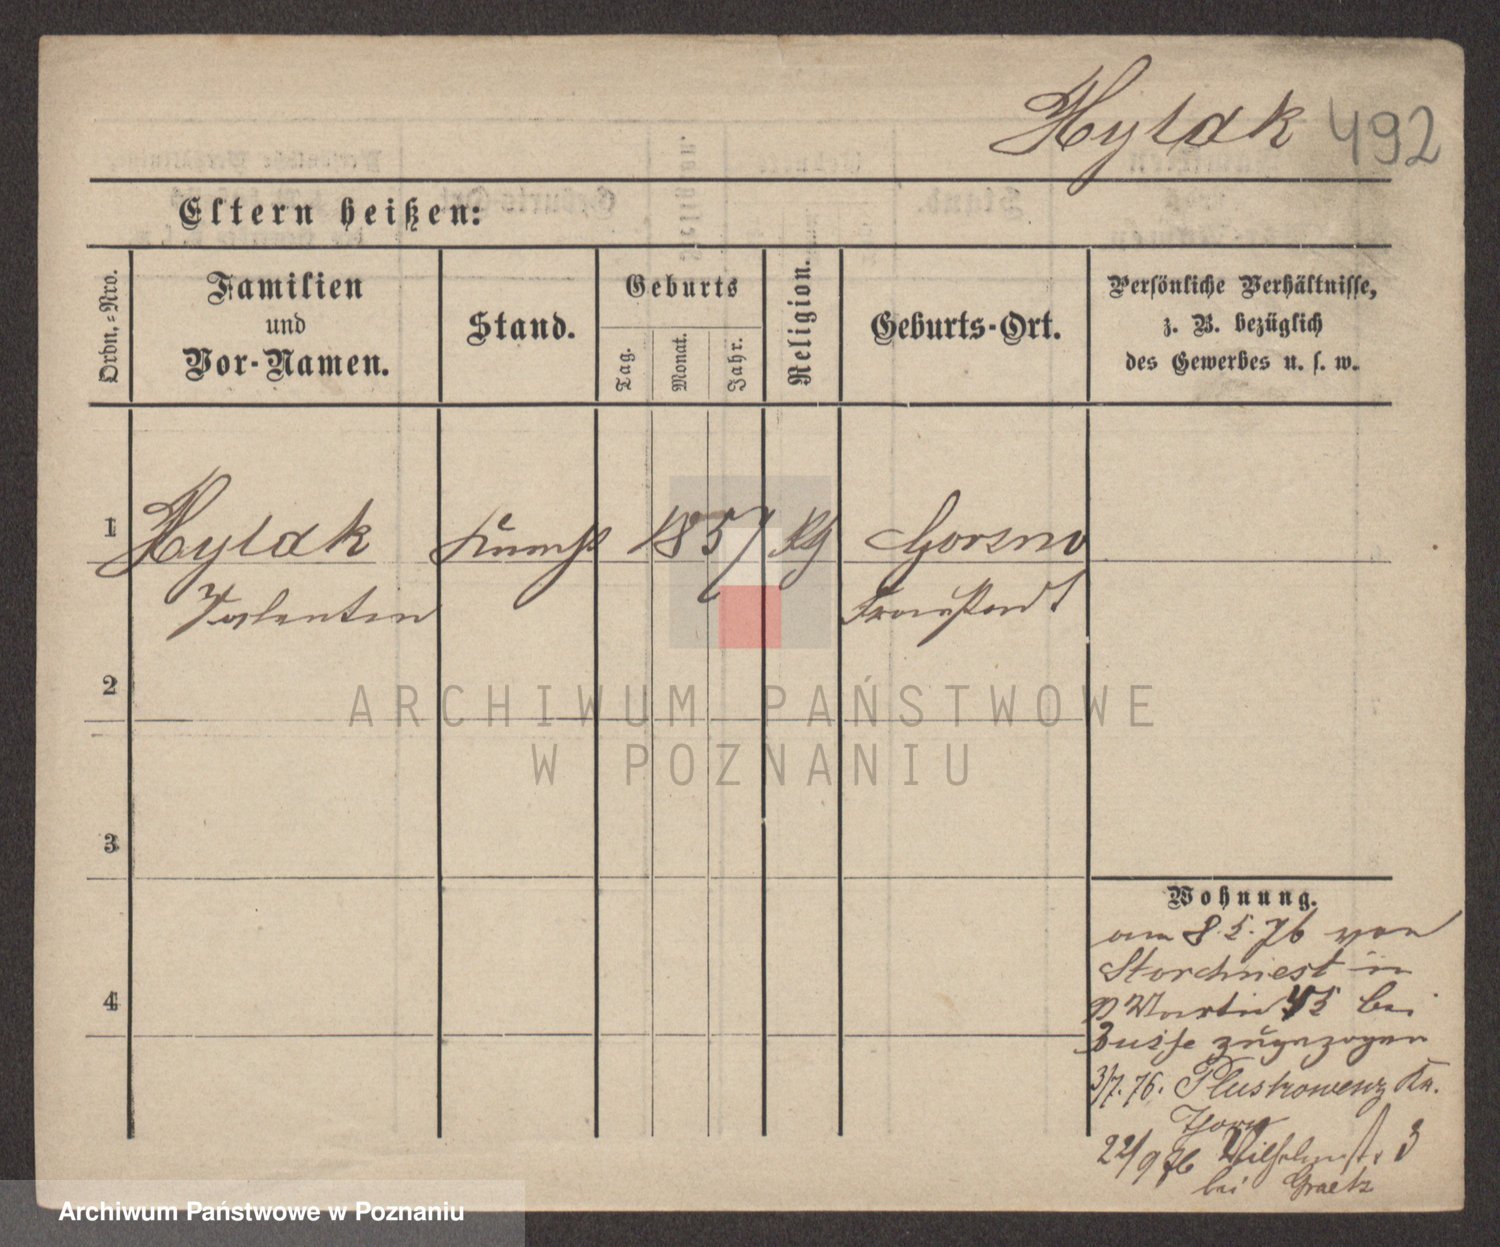 Hylak 492
Eltern heißen:
Ordn.-Nro.
Familien
und
Vor-Namen.
Stand.
Geburts
Tag.
Monat.
Jahr.
Religion.
Geburts-Ort.
Persönliche Verhältnisse,
z. B. bezüglich
des Gewerbes u. s. w.
1 Hylak 1857 Gorsno
Valentin Fraustadt
2
3
4
Wohnung.
am 8.5.76 von
Storchnest in
Martin 45 bei
Busse zugezogen
3/7.76. Plustrowenz Kr.
Thorn
22/9 76 Wilhelmstr 3
bei Graetz
ARCHIWUM PAŃSTWOWE
W POZNANIU
Archiwum Państwowe w Poznaniu